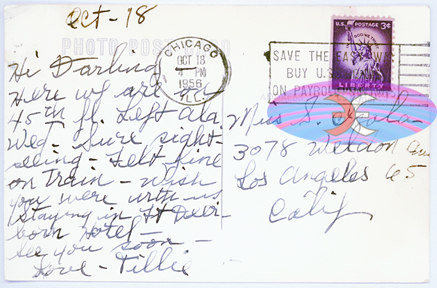 Oct-18
PHOTO POST CARD
Hi Darling
Here we are
45th fl. Left Ala
Wed - Sure sight-
seeing - Felt fine
on train - wish
you were with us
Staying in Ft Dear-
born Hotel -
See you soon -
Love - Tillie
CHICAGO
OCT 18
4 PM
1956
ILL.
SAVE THE EASY WAY
BUY U.S.
ON PAYROLL
U.S. POSTAGE 3¢
LIBERTY
Miss S.
3078 Weldon Ave
Los Angeles 65
Calif